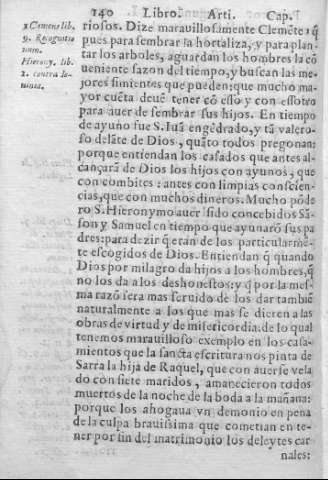 140 Libro. Arti. Cap.
riosos. Dize marauillosamente Clemēte: q̄
pues para sembrar la hortaliza, y para plan-
tar los arboles, aguardan los hombres la cō
ueniente sazon del tiempo, y buscan las me-
jores simientes que pueden: que mucho ma-
yor cuēta deuē tener cō esso y con essotro
para auer de sembrar sus hijos. En tiempo
de ayuno fue S. Iuā engēdrado, y tā valero-
so delāte de Dios, quāto todos pregonan:
porque entiendan los casados que antes al-
cançarā de Dios los hijos con ayunos, que
con combites: antes con limpias conscien-
cias, que con muchos dineros. Mucho pōde
ro S. Hieronymo auer sido concebidos Sā-
son y Samuel en tiempo que ayunarō sus pa
dres: para dezir q̄ eran de los particularmē-
te escogidos de Dios. Entiendan q̄ quando
Dios por milagro da hijos a los hombres, q̄
no los da a los deshonestos: y q̄ por la mes-
ma razō sera mas seruido dē los dar tambiē
naturalmente a los que mas se dieren a las
obras de virtud y de misericordia: de lo qual
tenemos marauilloso exemplo en los casa-
mientos que la sancta escritura nos pinta de
Sarra la hija de Raquel, que con auerse vela
do con siete maridos, amanecieron todos
muertos de la noche de la boda a la mañana:
porque los ahogaua vn demonio en pena
de la culpa brauissima que cometian en te-
ner por fin del matrimonio los deleytes car
nales:
1 Clemens lib.
9. Recognitio
num.
Hierony. lib.
2. contra Io-
uinia.